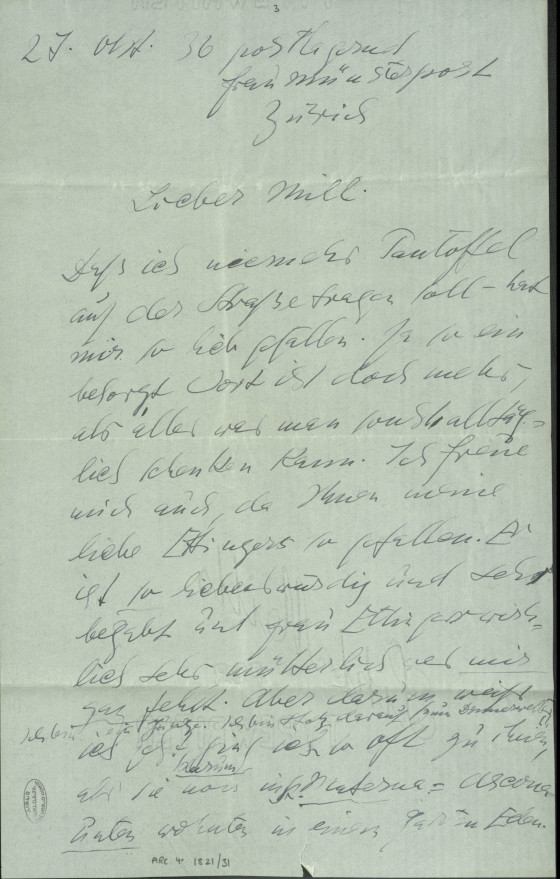 3
27. Okt. 36 postlagernd
Fraumünsterpost
Zürich
Lieber Mill.
Daß ich niemehr Pantoffel
auf der Straße tragen soll – hat
mir so lieb gefallen. Ja so ein
besorgt Wort ist doch mehr,
als alles was man sonst alltäg-
lich schenken kann. Ich freue
mich auch, da Ihnen meine
liebe Ettingers so gefallen. Er
ist so liebenswürdig und sehr
begabt und Frau Ettinger wirk-
lich sehr mütterlich was mir
fehlt. Aber darum
ich bin stolz darauf
ich so oft zu ihnen,
als sie noch Ascona
unten wohnten in einem Garten Eden.
ARC. 4° 1821/31